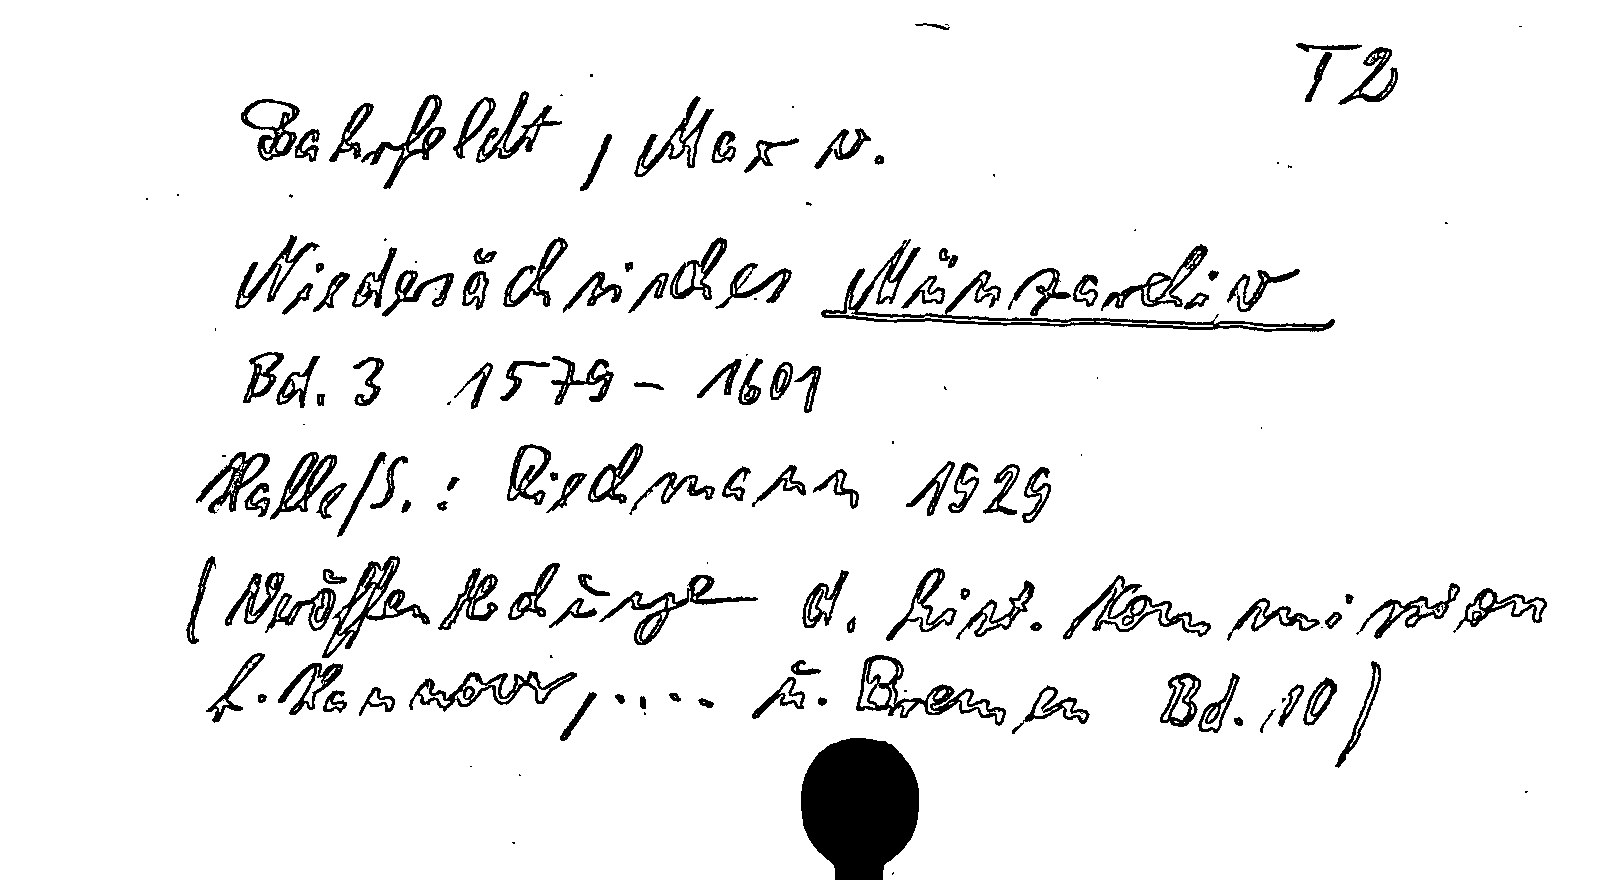 T2
Bahrfeldt, Max v.
Niedersächsisches Münzarchiv
Bd. 3 1579 - 1601
Halle/S.: Riechmann 1929
(Veröffentlichunge d. hist. Kommission
f. Hannover, .... u. Bremen Bd. 10)